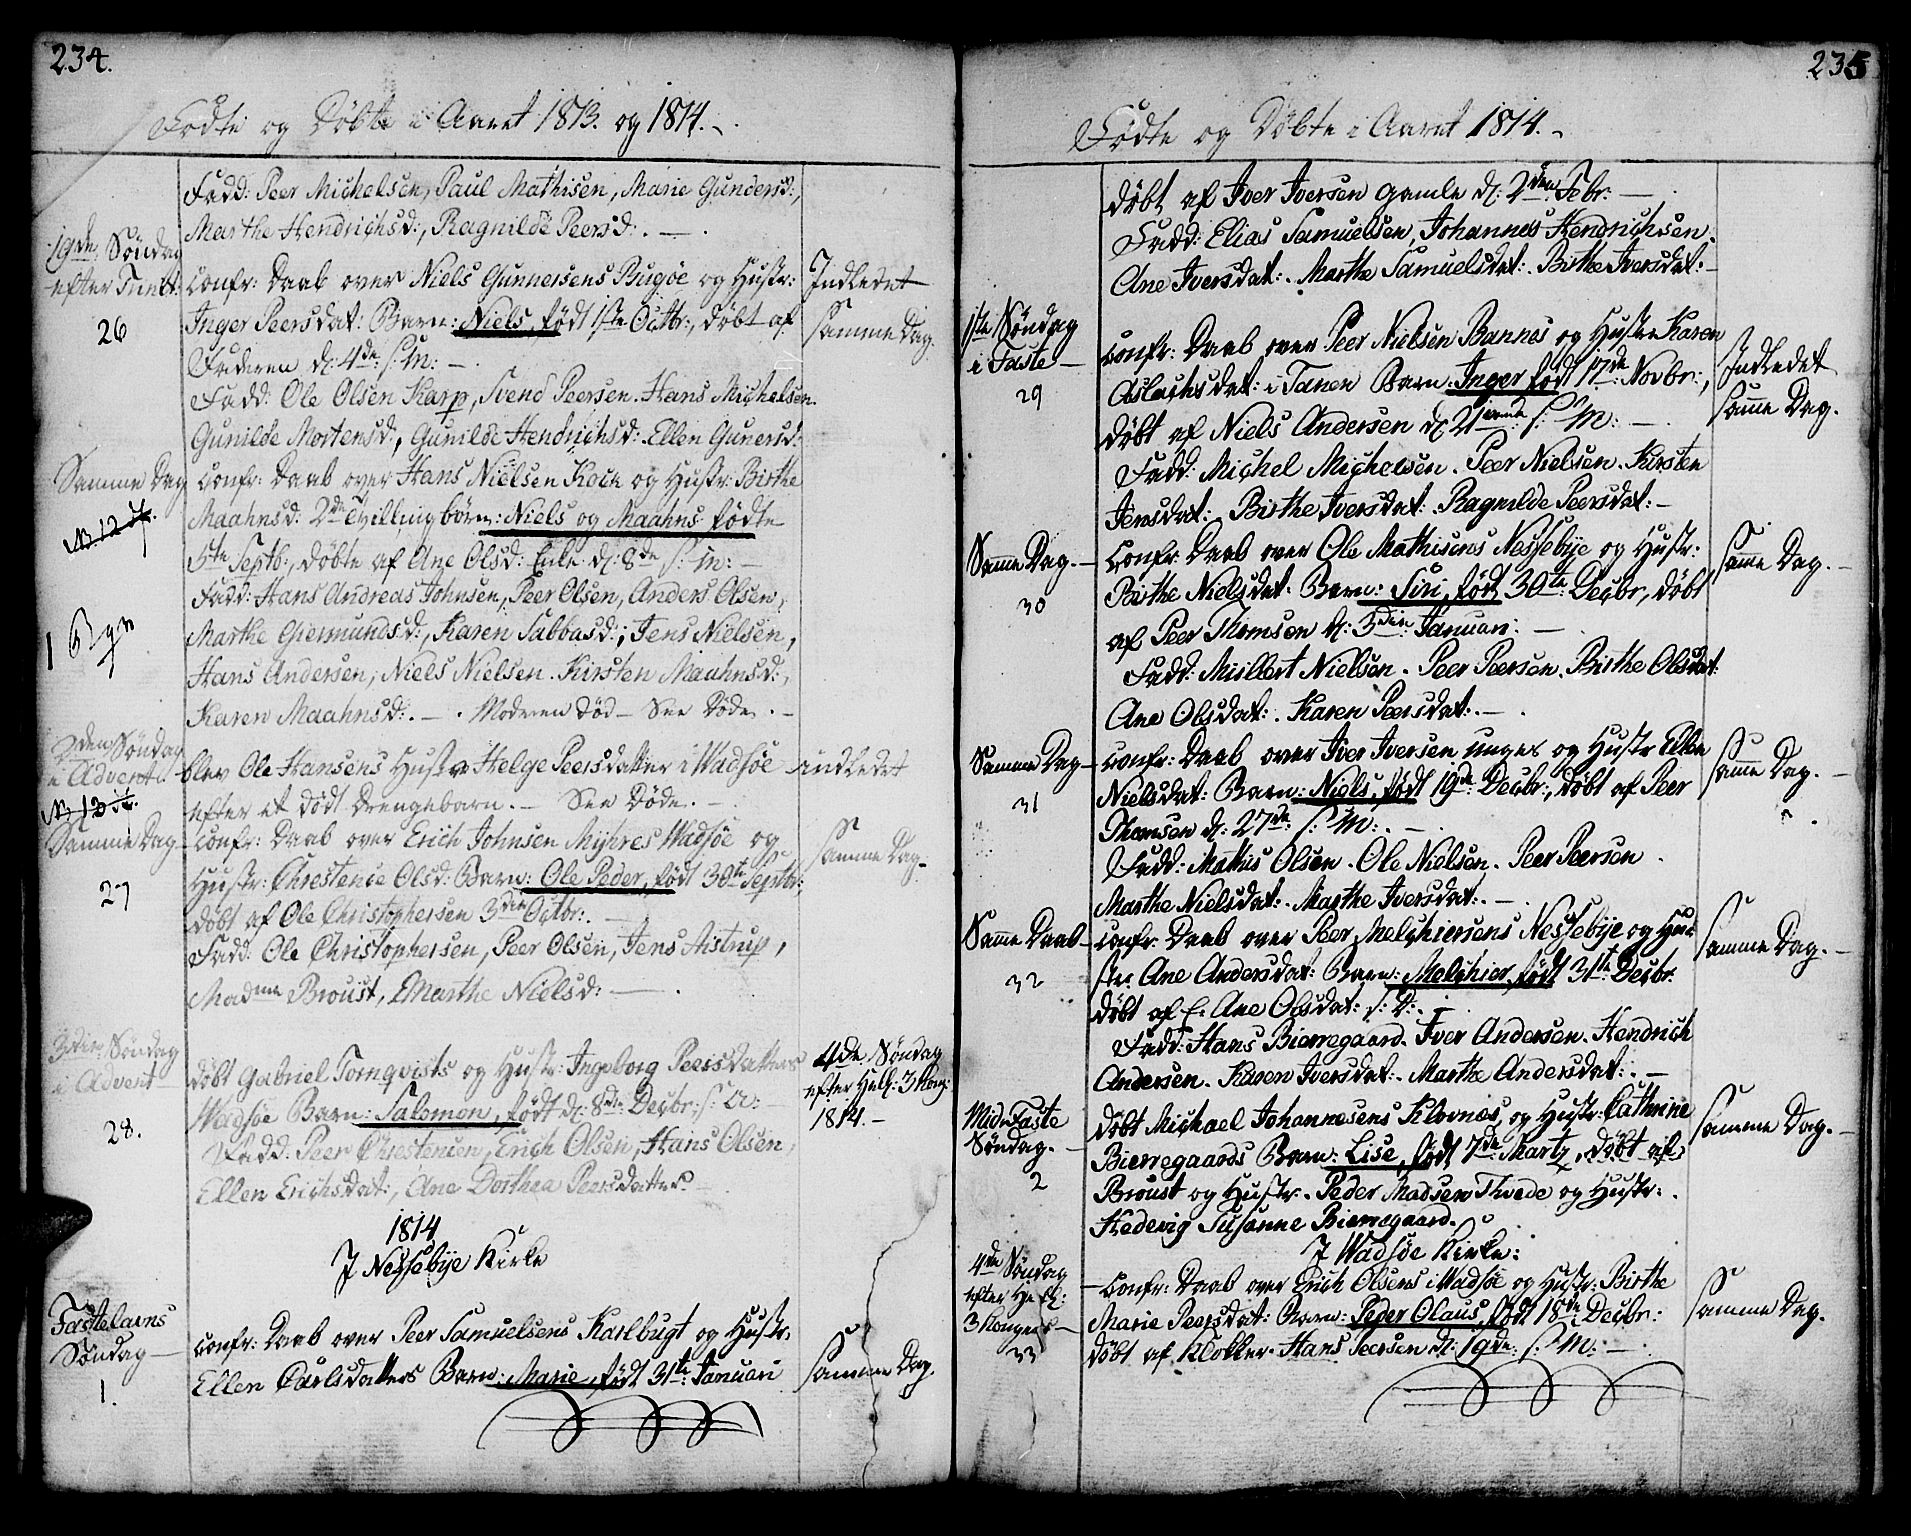 234.
Fødte og Døbte i Aaret 1813. og 1814.
Fadd: Peer Michelsen, Paul Mathisen, Marie Gundersd:,
Marthe Hendrichsd:, Ragnilde Peersd:. —
19de Søndag
efter Trinit:
26
Confr: Daab over Niels Gunnersens Bugøe og Hustr:
Inger Peersdat: Barn: Niels, født 1ste Octbr:, døbt af
Faderen d: 4de s: M: —
Indledet
samme Dag.
Fadd: Ole Olsen Karp, Svend Peersen. Hans Michelsen.
Gunilde Mortensd:, Gunilde Hendrichsd: Ellen Gunersd:
Samme Dag
Confr: Daab over Hans Nielsen Koch og Hustr: Birthe
Maahnsd: 2de Tvillingbørn: Niels og Maahns fødte
5te Septb:, døbte af Ane Olsd: Enke d: 8de s: M: —
Fadd: Hans Andreas Johnsen, Peer Olsen, Anders Olsen,
Marthe Giermundsd:, Karen Sabbasd:, Jens Nielsen,
Hans Andersen, Niels Nielsen. Kirsten Maahnsd:,
Karen Maahnsd:. — . Moderen død — See Døde. —
2den Søndag
i Advent
blev Ole Hansens Hustr Helge Peersdatter i Wadsøe indledet
efter et dødt Drengebarn. — See Døde. —
Samme Dag
27
Confr: Daab over Erich Johnsen Myhres Wadsøe og
Hustr: Chrestence Olsd: Barn: Ole Peder, født 30te Septbr:,
døbt af Ole Christophersen 3die Octbr:. —
samme Dag.
Fadd: Ole Christophersen, Peer Olsen, Jens Aistrup,
Madme Broust, Marthe Nielsd: — .
3die Søndag
i Advent
28.
døbt Gabriel Tornqvists og Hustr: Ingeborg Peersdatters
Wadsøe Barn: Salomon, født d: 8de Decbr: s: A: —
4de Søndag
efter Hell: 3 Kong:
1814. —
Fadd: Peer Chrestensen, Erich Olsen, Hans Olsen,
Ellen Erichsdat:, Ane Dorthea Peersdatter. —
1814
I Nessebye Kirke
Fastelavns
Søndag —
1.
Confr: Daab over Peer Samuelsens Karlbugt og Hustr.
Ellen Carlsdatters Barn: Marie, født 31te Januari
samme Dag.
235
Fødte og Døbte i Aaret 1814. —
døbt af Iver Iversen gamle d: 2den Febr: —
Fadd: Elias Samuelsen, Johannes Hendrichsen.
Ane Iversdat:. Marthe Samuelsdat: Birthe Iversdat: —
1ste Søndag
i Faste —
29
Confr: Daab over Peer Nielsen Bannes og Hustr Karen
Aslachsdat: i Tanen Barn: Inger født 17de Novbr:,
døbt af Niels Andersen d: 21 s: M: —
Indledet
samme Dag.
Fadd: Michel Michelsen. Peer Nielsen. Kirsten
Jensdat: Birthe Iversdat: Ragnilde Peersdat: —
Samme Dag. —
30
Confr: Daab over Ole Mathisens Nessebye og Hustr:
Birthe Nielsdat. Barn: Siri, født 30te Decbr, døbt
af Peer Thomsen d: 3die Januari. —
samme Dag. —
Fadd: Miillert Nielsen. Peer Peersen. Birthe Olsdat:
Ane Olsdat:. Karen Peersdat:. — .
Samme Dag —
31
Confr: Daab over Iver Iversen unges og Hustr Ellen
Nielsdat: Barn: Niels, født 19de Decbr:, døbt af Peer
Thomsen d: 27de s: M:. —
samme Dag. —
Fadd: Mathis Olsen. Ole Nielsen. Peer Peersen.
Marthe Nielsdat:. Marthe Iversdat:. — .
Samme Daab —
32
Confr: Daab over Peer Melchiersens Nessebye og Hu-
str: Ane Andersdat: Barn: Melchier, født 31te Decbr.
døbt af E: Ane Olsdat: s: D:.
samme Dag. —
Fadd: Hans Bierregaard. Iver Andersen. Hendrich
Andersen. Karen Iversdat:. Marthe Andersdat:. —
Mid Faste
Søndag. —
2
døbt Michael Johannesens Klovnæs og Hustr: Cathrine
Bierregaards Barn: Lise, født 7de Martz, døbt af
Broust og Hustr. Peder Madsen Thvede og Hustr: .
Hedevig Susanne Bierregaard.
samme Dag. —
I Wadsøe Kirke:
4de Søndag
efter Hell:
3 Konger —
33
Confr: Daab over Erich Olsens i Wadsøe og Hustr: Birthe
Marie Peersdat: Barn: Peder Olaus, født 18de Decbr:
døbt af Klokker Hans Peersen d: 19de: s: M: —
samme Dag.